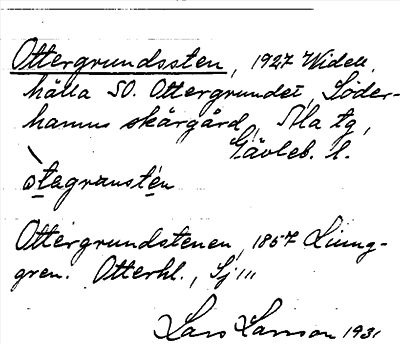 Ottergrundssten, 1927 Widell
hälla SO. Ottergrundet, Söder-
hamns skärgård, Ala tg,
Gävleb. l.
òtegranstèn
Ottergrundstenen, 1857 Ljung-
gren. Otterhl., Sj III
Lars Larsson 1931